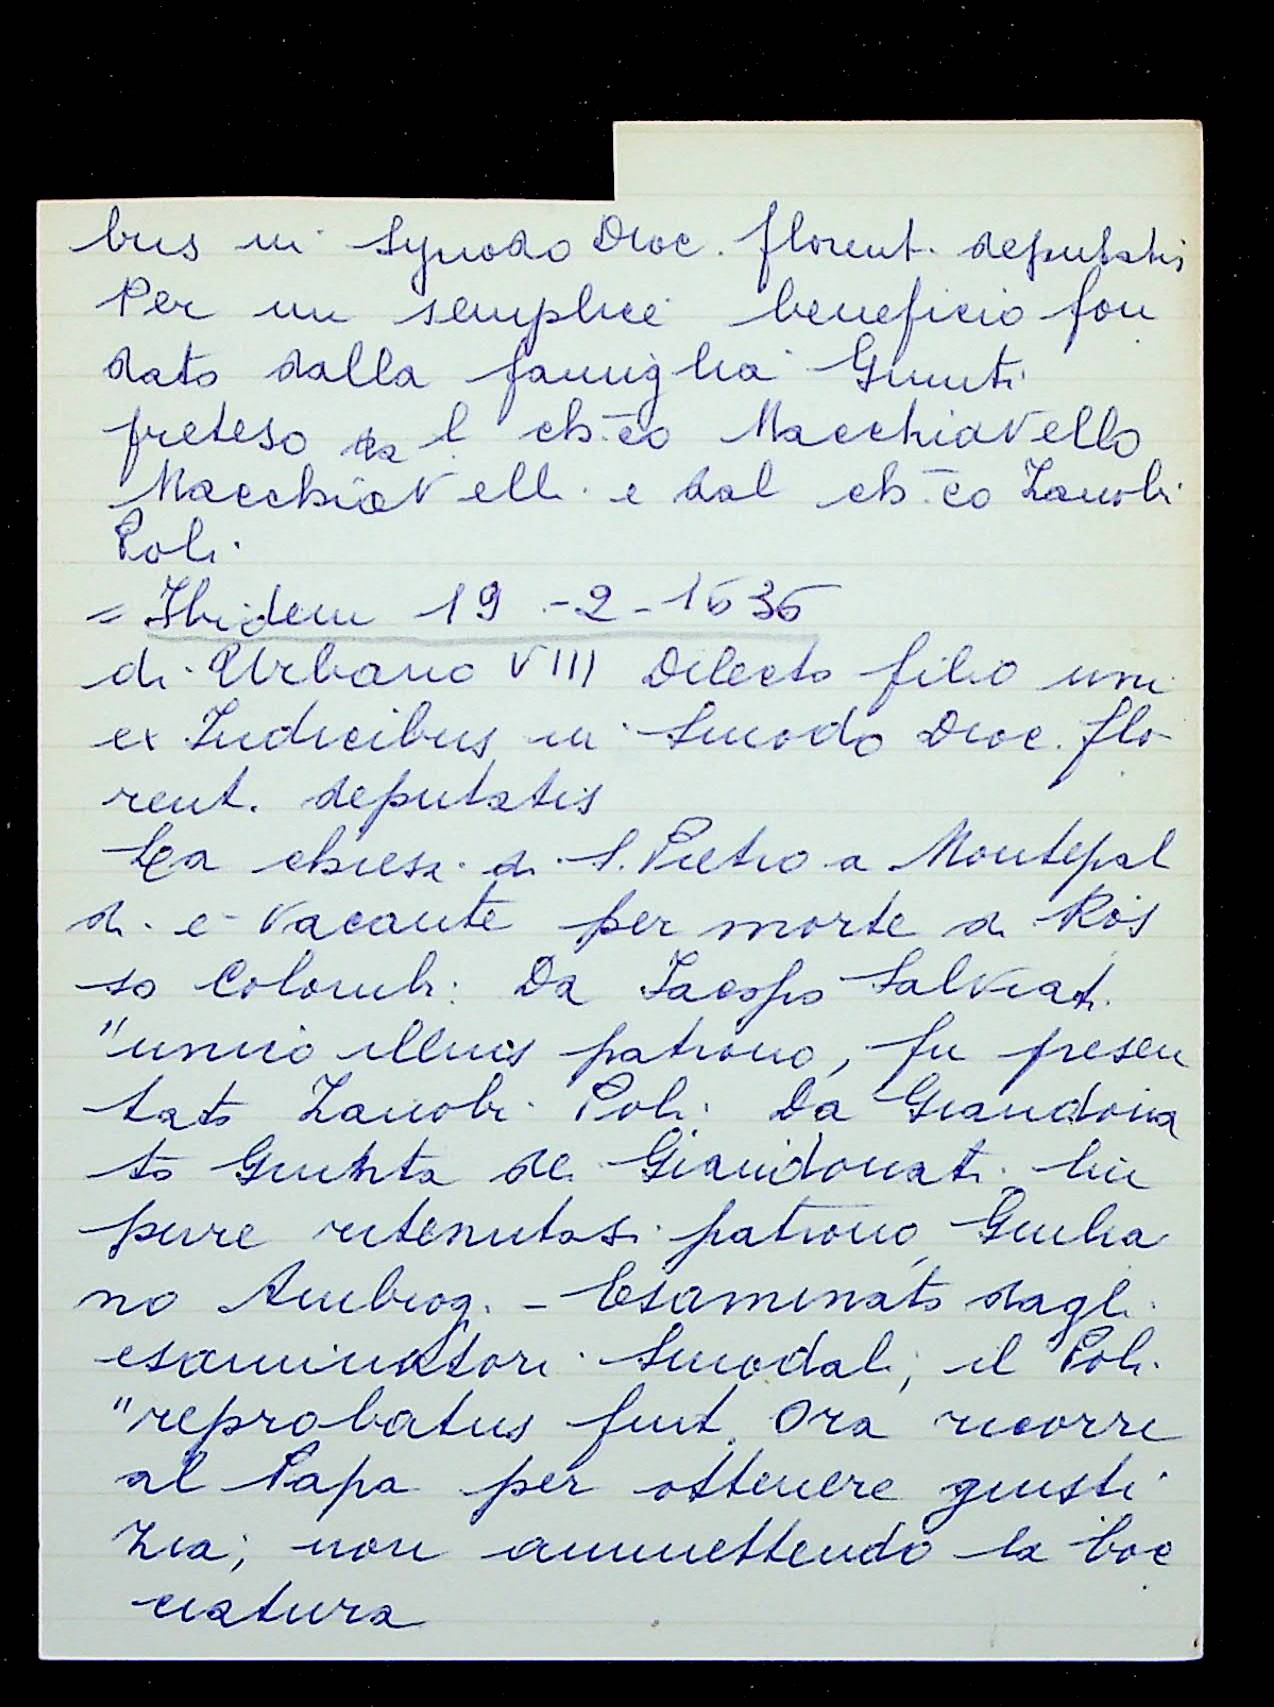 bus in Synodo Dioc. florent. deputatis
Per un semplice beneficio fon
dato dalla famiglia Giunti
preteso da l ch-co Macchiavello
Macchiavelli e dal ch-co Zanobi
Poli.
= Ibidem 19 - 2 - 1636
di Urbano VIII Dilecto filio uni
ex Iudicibus in Sinodo Dioc. flo-
rent. deputatis
La chiesa di S. Pietro a Montepal
di è vacante per morte di Ros
so Colombi: Da Iacopo Salviati
"unico illius patrono, fu presen
tato Zanobi Poli. Da Giandona
to Giunta de Giandonati lui
pure ritenutosi patrono, Giulia
no Ambrog. - Esaminato dagli
esaminatori Sinodali, il Poli
"reprobatus fuit. Ora ricorre
al Papa per ottenere giusti
zia; non ammettendo la boc
ciatura